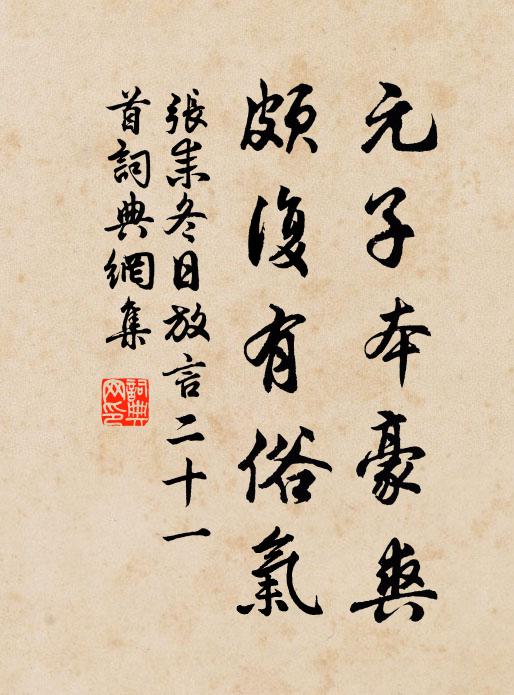 元子本豪爽
頗復有俗氣
張耒冬日放言二十一
首詞典網集
詞典
网印